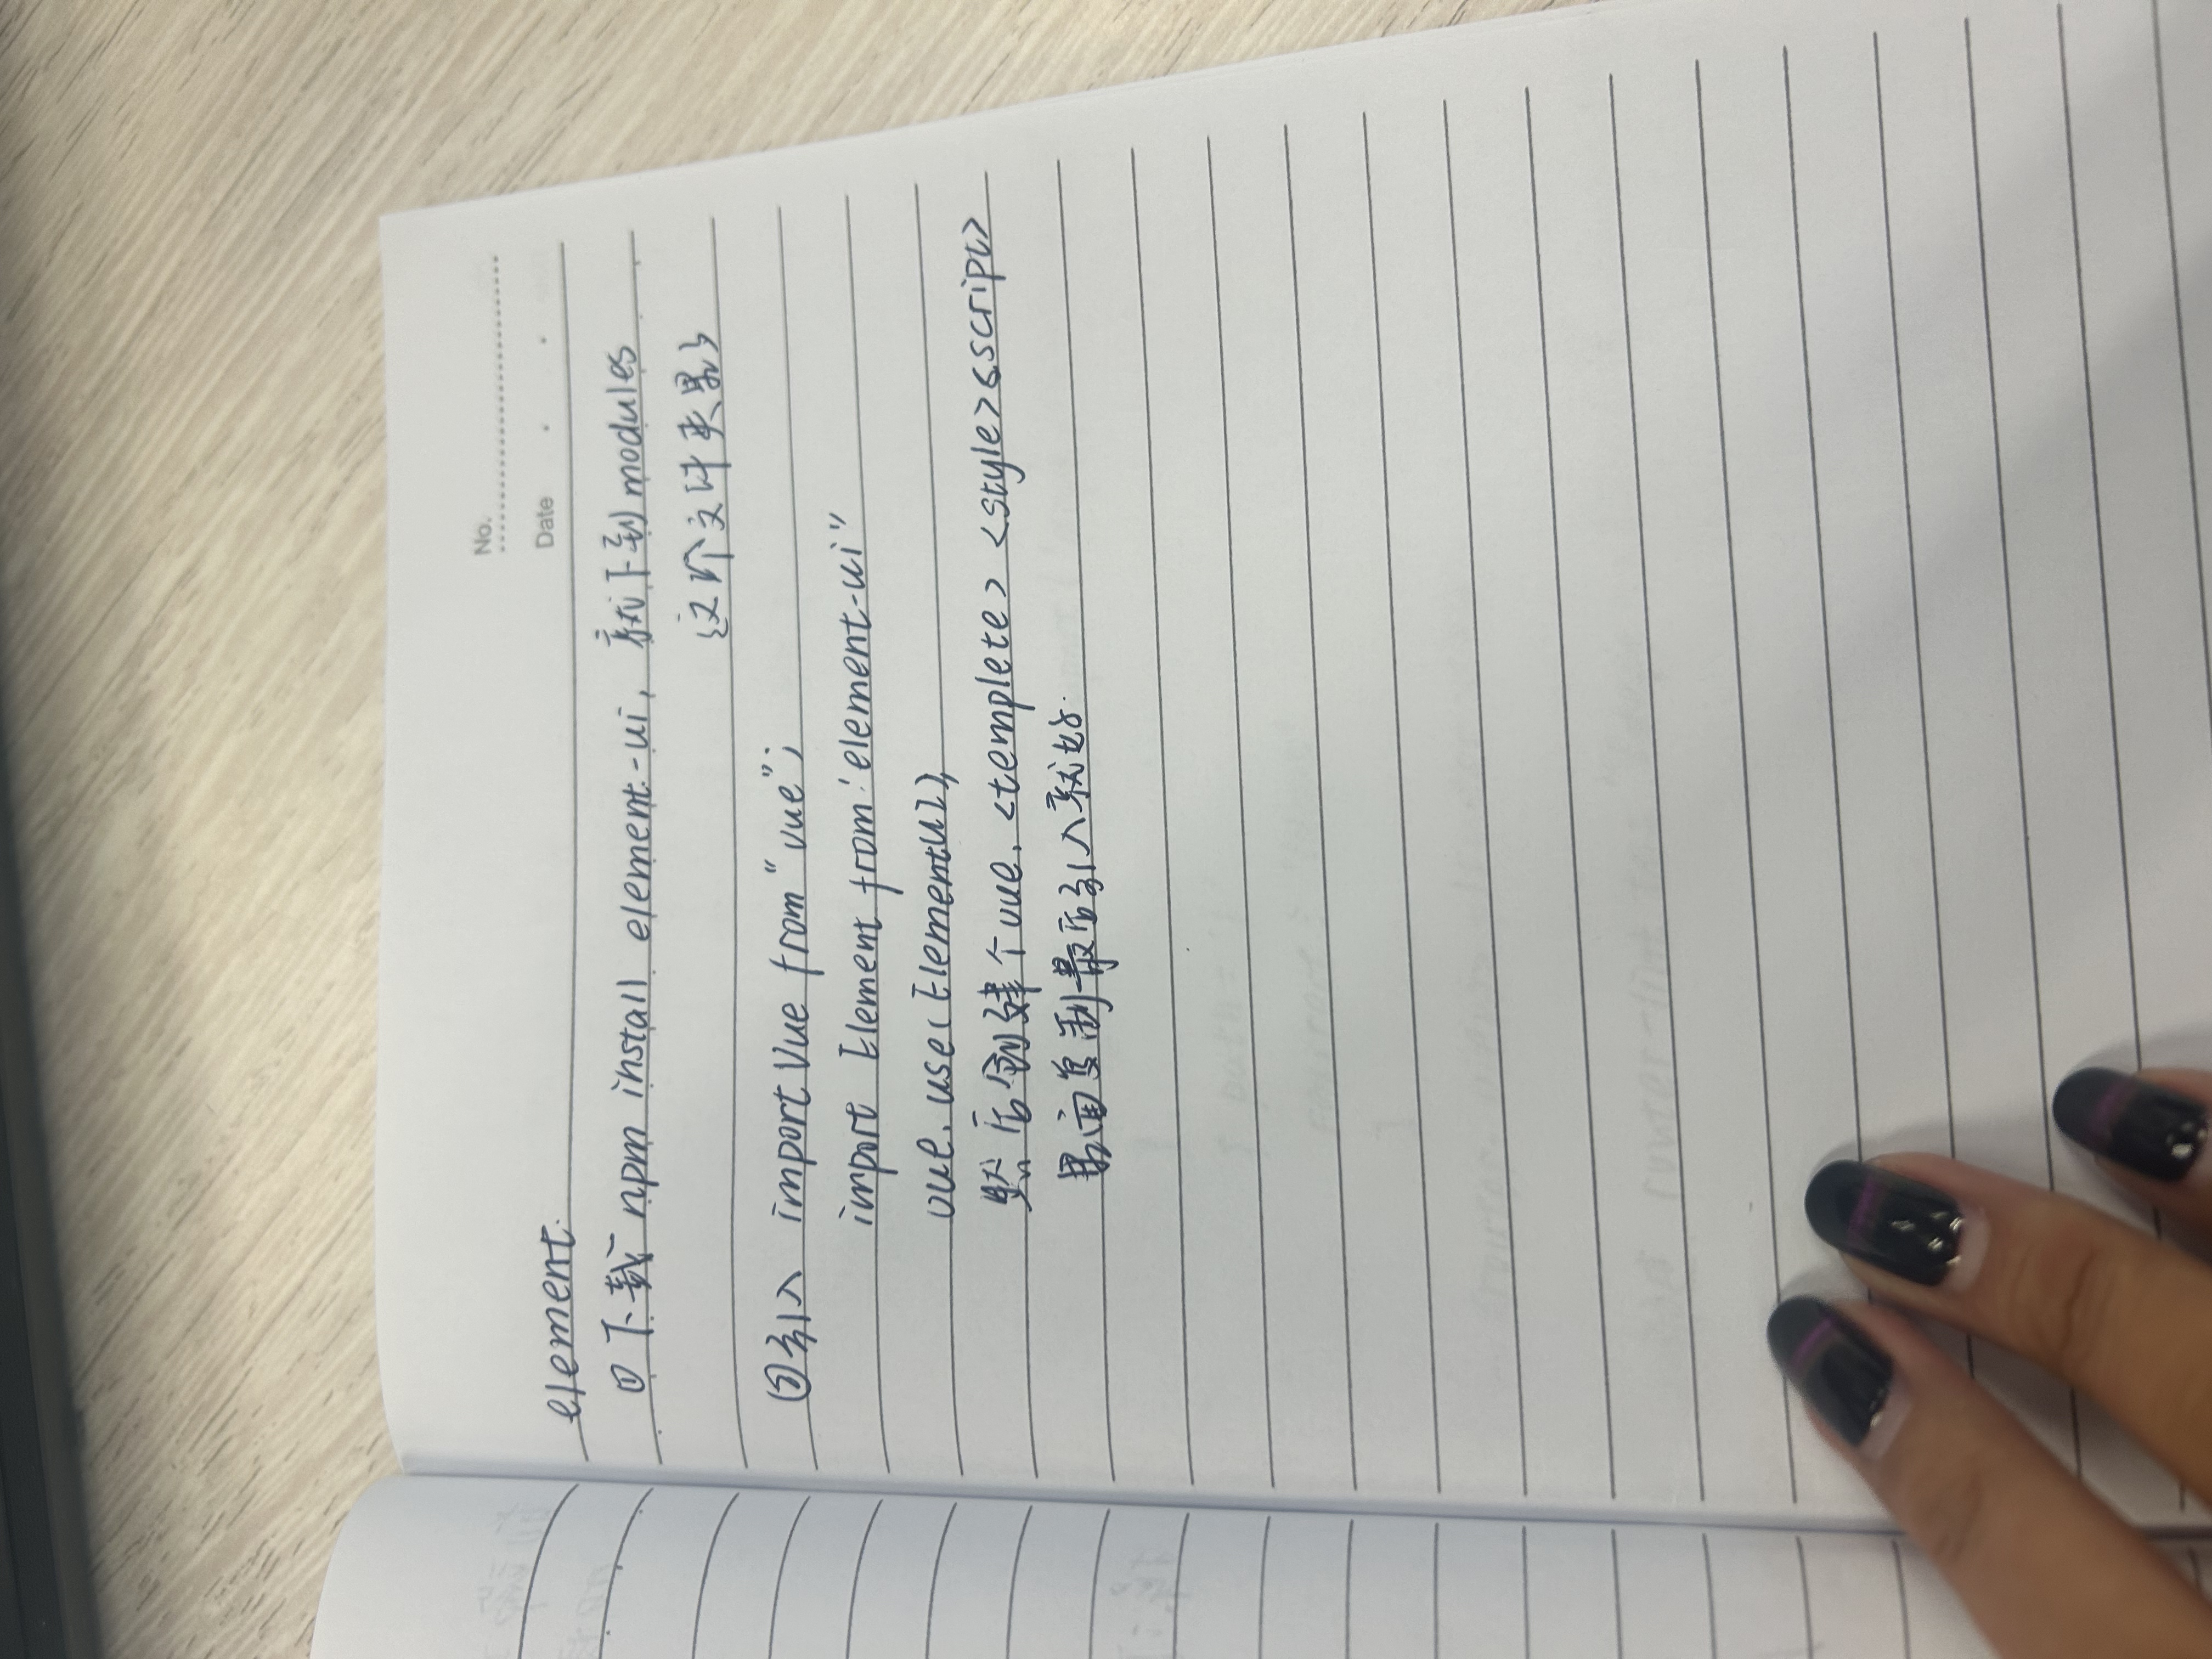 No.
Date
element.
①下载 npm install element-ui, 就下到modules
这个文件夹里了
②引入 import Vue from "vue";
import Element from 'element-ui"
vue. use(ElementUI),
然后创建个vue. <templete> <style><script>
里面复制最后引入就好.